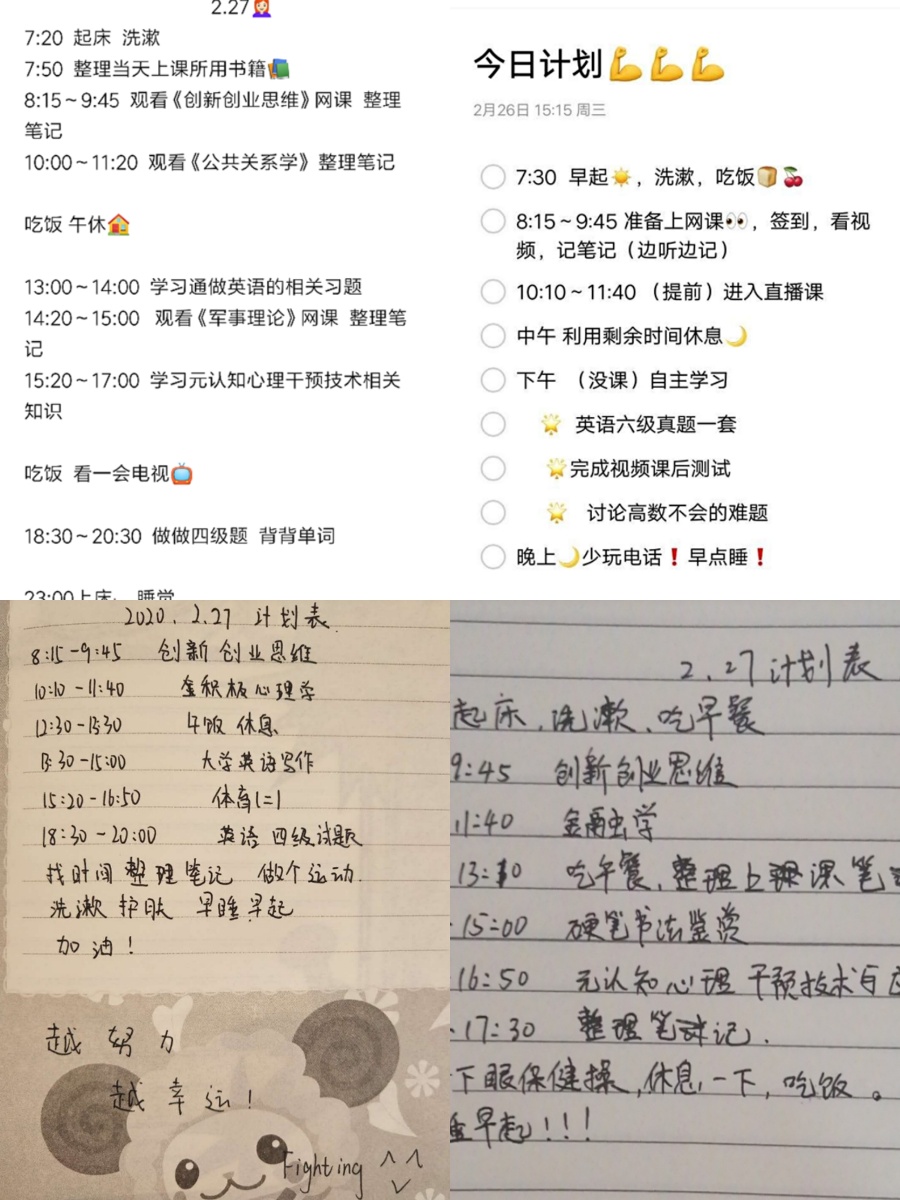 2.27
7:20 起床 洗漱
7:50 整理当天上课所用书籍
8:15~9:45 观看《创新创业思维》网课 整理
笔记
10:00~11:20 观看《公共关系学》 整理笔记
吃饭 午休
13:00~14:00 学习通做英语的相关习题
14:20~15:00 观看《军事理论》网课 整理笔
记
15:20~17:00 学习元认知心理干预技术相关
知识
吃饭 看一会电视
18:30~20:30 做做四级题 背背单词
23:00上床 睡觉
今日计划
2月26日 15:15 周三
7:30 早起，洗漱，吃饭
8:15~9:45 准备上网课，签到，看视
频，记笔记（边听边记）
10:10~11:40 （提前）进入直播课
中午 利用剩余时间休息
下午 （没课）自主学习
英语六级真题一套
完成视频课后测试
讨论高数不会的难题
晚上少玩电话❗早点睡❗
2020.2.27 计划表
8:15-9:45 创新创业思维
10:10-11:40 金积极心理学
12:30-13:30 午饭 休息
13:30-15:00 大学英语写作
15:20-16:50 体育(二)
18:30-20:00 英语 四级试题
找时间 整理笔记 做个运动
洗漱 护肤 早睡早起
加油！
越努力
越幸运！
Fighting
2.27计划表
起床、洗漱、吃早餐
9:45 创新创业思维
11:40 金融学
13:10 吃午餐，整理上课笔
15:00 硬笔书法鉴赏
16:50 元认知心理干预技术与
17:30 整理笔记.
下眼保健操，休息一下，吃饭。
早起！！！